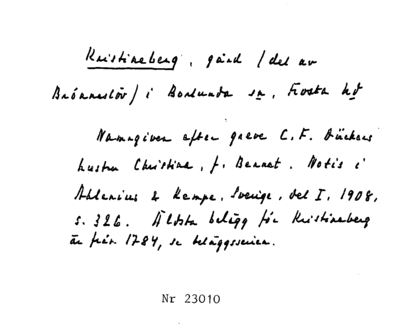 Kristineberg, gård (del av
Brönneslöv) i Borlunda sn, Frosta hd
Namngiven efter greve C. F. Dückers
hustru Christina, f. Bennet. Notis i
Ahlenius & Kempe, Sverige, del I, 1908,
s. 326. Äldsta belägg för Kristineberg
är från 1784, se beläggsserien.
Nr 23010